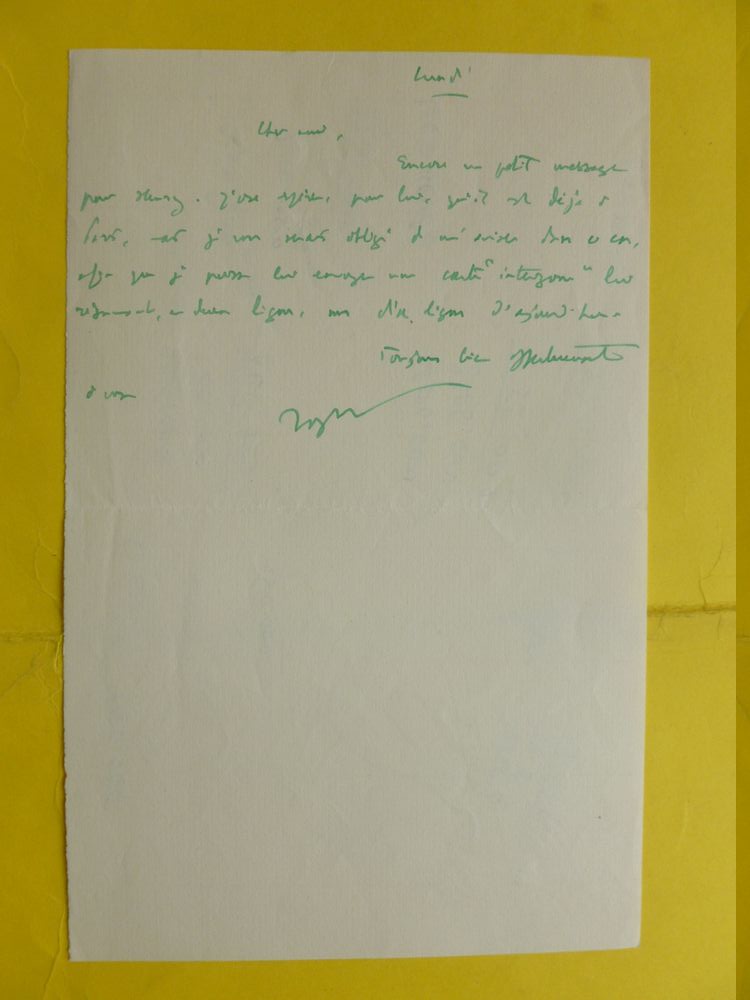 Lundi
Cher ami,
Encore un petit message
pour Henry. J'ose espérer, pour lui, qu'il est déjà à
Paris, et je vous serais obligé de m'aviser dans ce cas,
afin que je puisse lui envoyer une carte "interzone" lui
résumant, en deux lignes, mes lignes d'aujourd'hui.
Toujours bien affectueusement
à vous
Roger